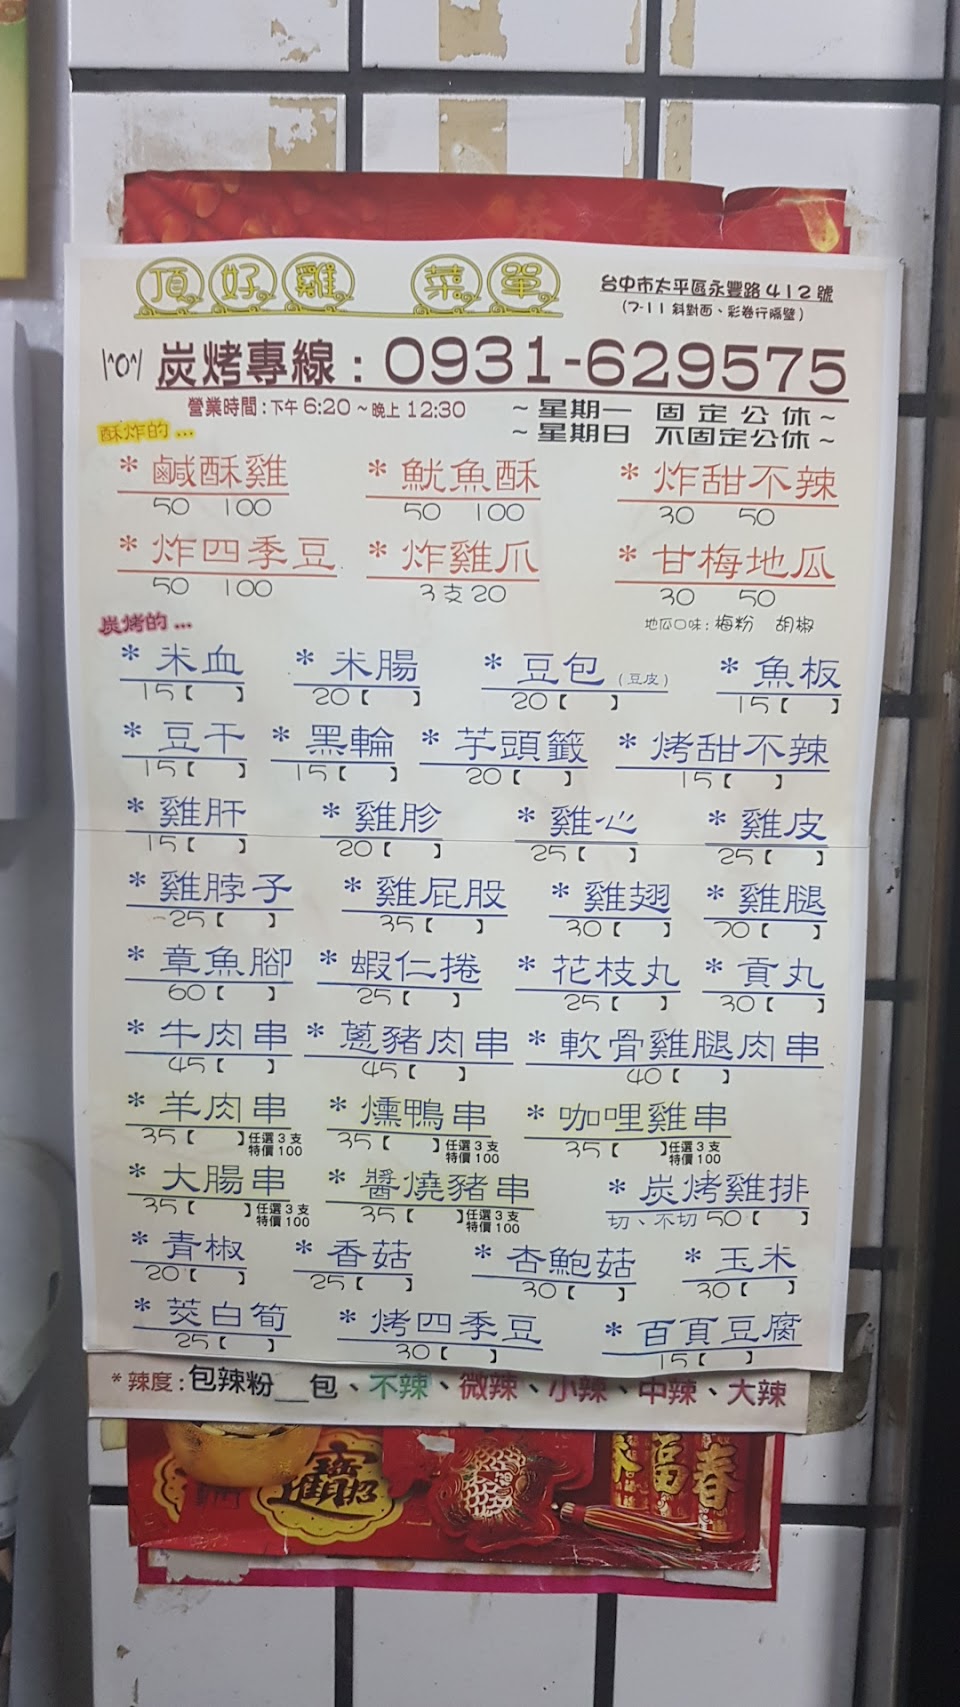 頂好雞 菜單
台中市太平區永豐路412號
(7-11斜對面、彩卷行隔壁)
炭烤專線：0931-629575
營業時間：下午6:20～晚上12:30
～星期一 固定公休～
～星期日 不固定公休～
酥炸的...
*鹹酥雞 *魷魚酥 *炸甜不辣
50 100 50 100 30 50
*炸四季豆 *炸雞爪 *甘梅地瓜
50 100 3支20 30 50
地瓜口味：梅粉 胡椒
炭烤的...
*米血 *米腸 *豆包(豆皮) *魚板
15【 】 20【 】 20【 】 15【 】
*豆干 *黑輪 *芋頭籤 *烤甜不辣
15【 】 15【 】 20【 】 15【 】
*雞肝 *雞胗 *雞心 *雞皮
15【 】 20【 】 25【 】 25【 】
*雞脖子 *雞屁股 *雞翅 *雞腿
25【 】 35【 】 30【 】 70【 】
*章魚腳 *蝦仁捲 *花枝丸 *貢丸
60【 】 25【 】 25【 】 30【 】
*牛肉串 *蔥豬肉串 *軟骨雞腿肉串
45【 】 45【 】 40【 】
*羊肉串 *燻鴨串 *咖哩雞串
35【 】任選3支特價100 35【 】任選3支特價100 35【 】任選3支特價100
*大腸串 *醬燒豬串 *炭烤雞排
35【 】任選3支特價100 35【 】任選3支特價100 切、不切 50【 】
*青椒 *香菇 *杏鮑菇 *玉米
20【 】 25【 】 30【 】 30【 】
*茭白筍 *烤四季豆 *百頁豆腐
25【 】 30【 】 15【 】
*辣度：包辣粉__包、不辣、微辣、小辣、中辣、大辣
福 春